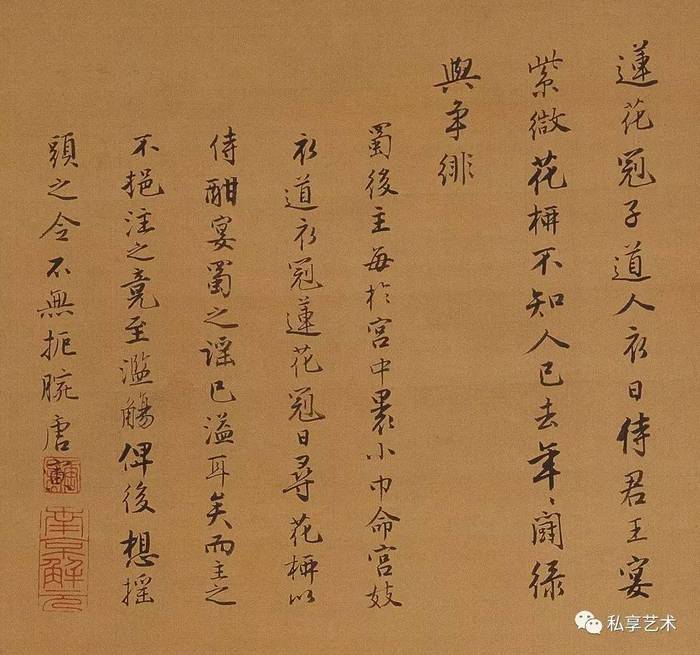 蓮花冠子道人衣日侍君王宴
紫微花柳不知人已去年々鬪綠
與爭緋
蜀後主每於宮中裹小巾命宮妓
衣道衣冠蓮花冠日尋花柳以
侍酣宴蜀之謠已溢耳矣而主之
不挹注之竟至濫觴俾後想搖
頭之令不無扼腕唐
寅
南京解元
私享艺术